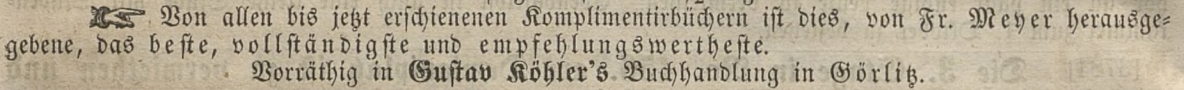 ☞ Von allen bis jetzt erschienenen Komplimentirbüchern ist dies, von Fr. Meyer herausge-
gebene, das beste, vollständigste und empfehlungswertheste.
Vorräthig in Gustav Köhler's Buchhandlung in Görlitz.